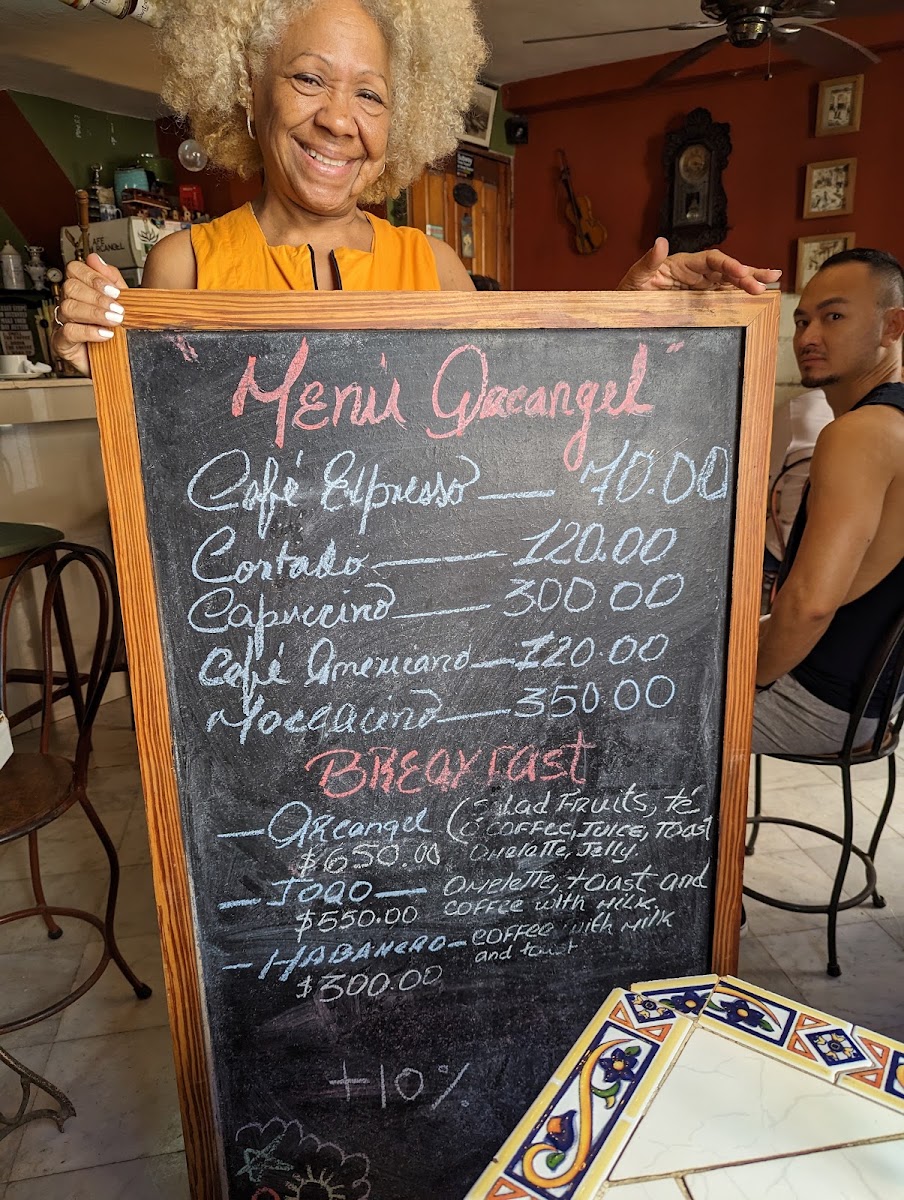 "Menú Arcangel"
Café Expresso — 70.00
Cortado — 120.00
Capuccino — 300.00
Café Americano — 120.00
Moccacino — 350.00
BREAKFAST
— Arcangel (Salad Fruits, té
ó COFFEE, JUICE, TOAST
$650.00 Omelatte, Jelly.
— JOAO — OMELETTE, toast and
$550.00 COFFEE with MILK,
— HABANERO — COFFEE with MILK
and toast
$300.00
+10%